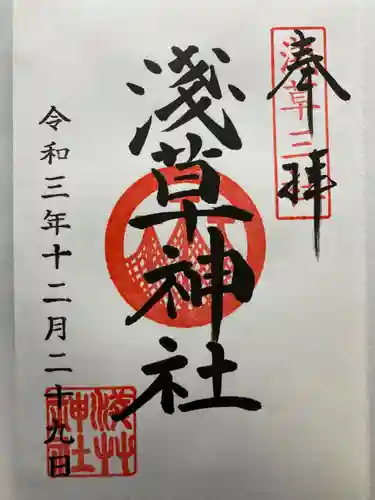 奉拝
浅草三社
淺草神社
令和三年十二月二十九日
淺艸神社